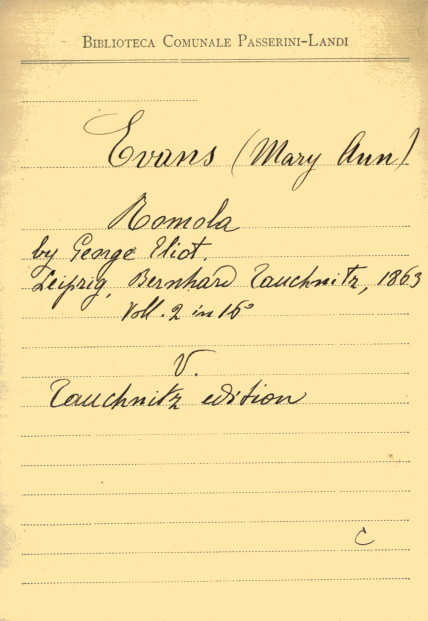 BIBLIOTECA COMUNALE PASSERINI-LANDI
Evans (Mary Ann)
Romola
by George Eliot.
Leipzig, Bernhard Tauchnitz, 1863
Voll. 2 in 16°
V.
Tauchnitz edition
C